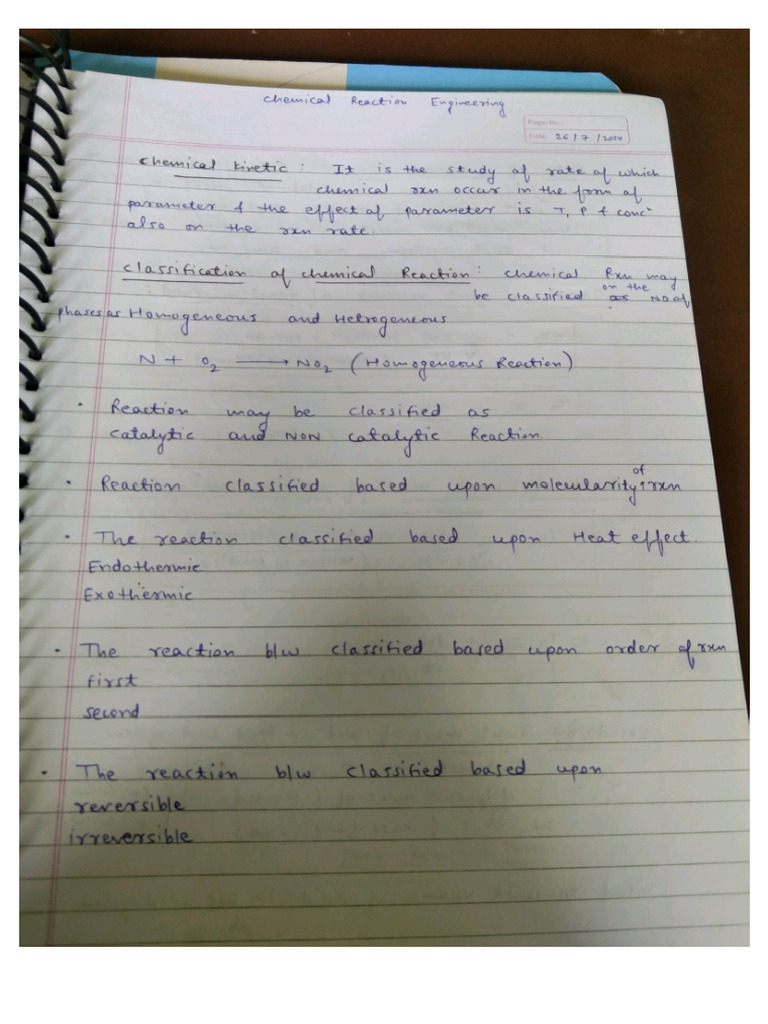 Chemical Reaction Engineering
Page No.
Date: 26/7/2024
Chemical Kinetic : It is the study of rate of which
chemical rxn occur in the form of
parameter & the effect of parameter is T, P & concⁿ
also on the rxn rate.
Classification of chemical Reaction : chemical Rxn may
be classified as on the No of
phases as Homogeneous and Hetrogeneous
N + O₂ → NO₂ (Homogeneous Reaction)
• Reaction may be classified as
catalytic and NON catalytic Reaction.
• Reaction classified based upon molecularity of rxn
• The reaction classified based upon Heat effect.
Endothermic
Exothermic
• The reaction b/w classified based upon order of rxn
first
second
• The reaction b/w classified based upon
reversible
irreversible